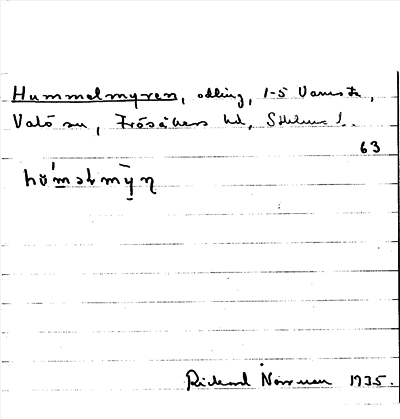 Hummelmyren, odling, 1-5 Vamsta,
Vätö sn, Frösåkers hd, Sthlms l.
63
hu̇́məl mỳn
Rickard Norrman 1935.